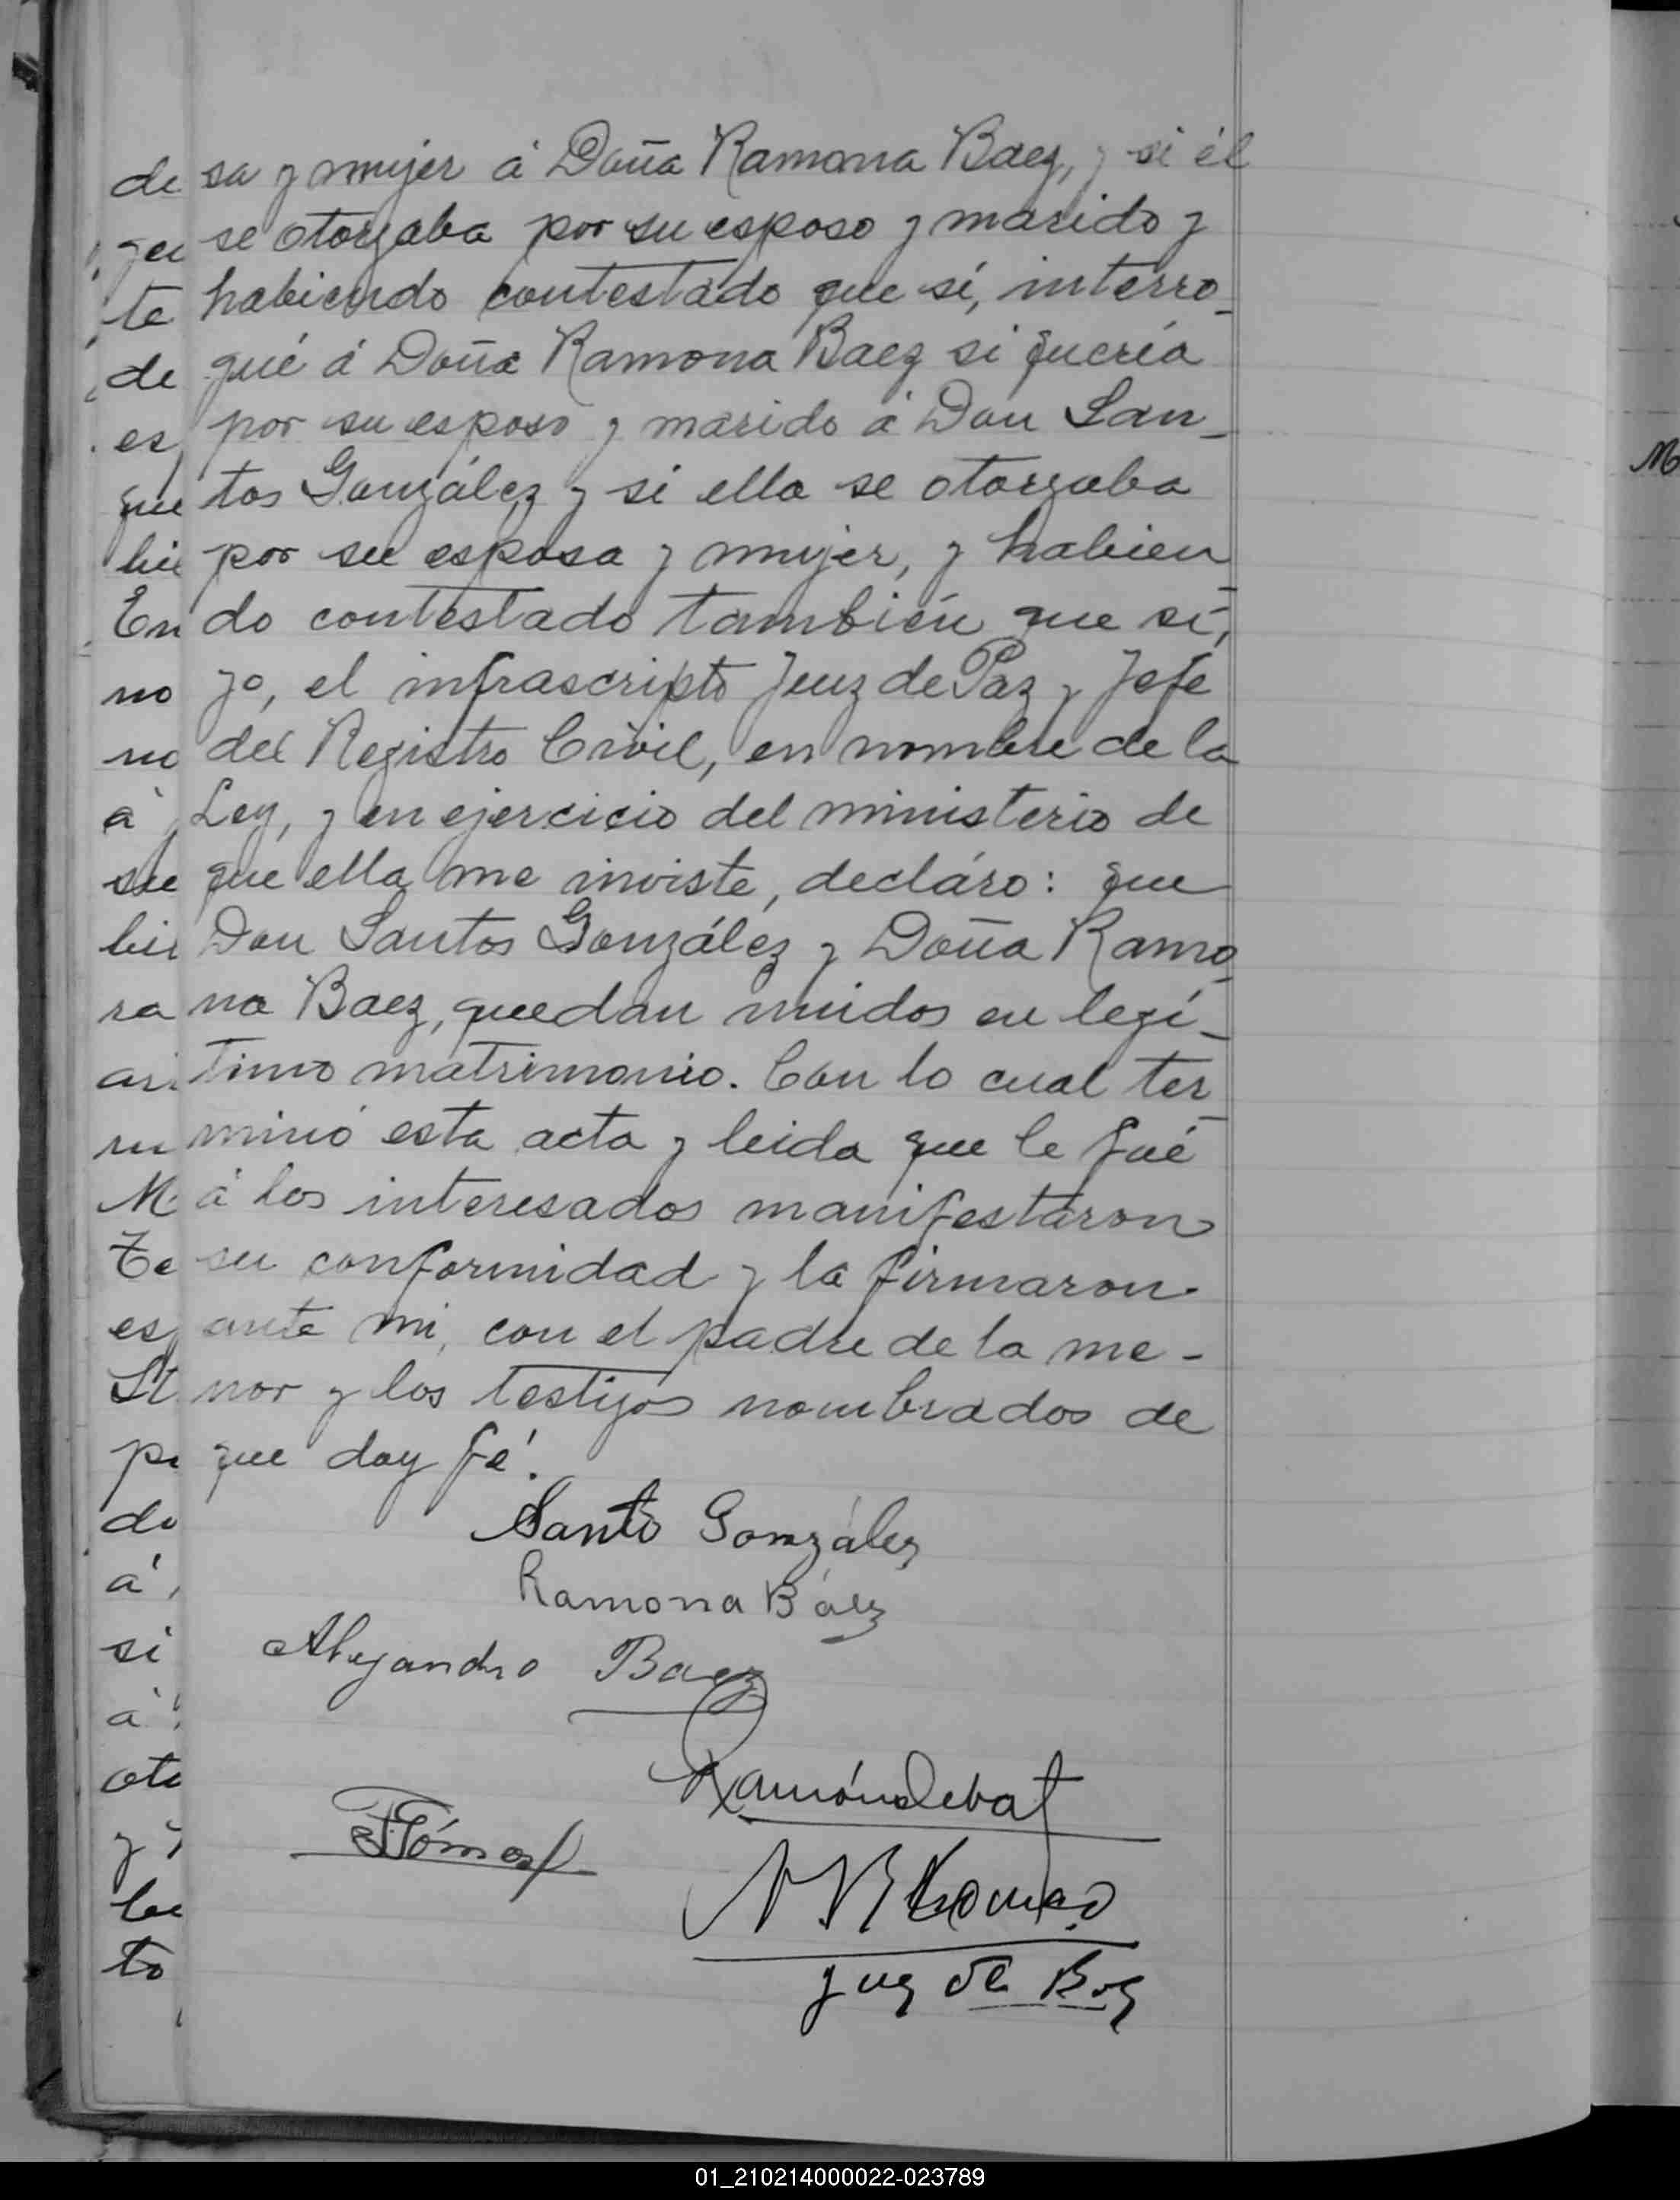 sa y mujer á Doña Ramona Baez, y si él
se otorgaba por su esposo y marido y
habiendo contestado que sí, interro-
gué á Doña Ramona Baez si quería
por su esposo y marido á Don San-
tos González y si ella se otorgaba
por su esposa y mujer, y habien-
do contestado también que sí,
yo, el infrascripto Juez de Paz y Jefe
del Registro Civil, en nombre de la
Ley, y en ejercicio del ministerio de
que ella me inviste, decláro: que
Don Santos González y Doña Ramo-
na Baez, quedan unidos en legí-
timo matrimonio. Con lo cual ter-
minó esta acta y leida que le fué
á los interesados manifestaron
su conformidad y la firmaron
ante mi, con el padre de la me-
nor y los testigos nombrados de
que doy fé.
Santo González
Ramona Báez
Alejandro Baez
Ramón Debat
Juez de Paz
de
te
de
es
que
En
no
no
á
su
ra
M
es
St
do
á
si
á
to
01_210214000022-023789